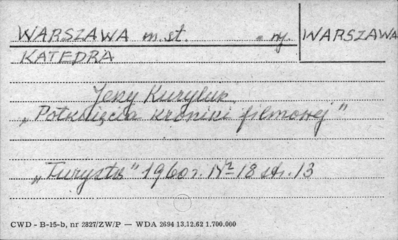 WARSZAWA m. st. WARSZAWA
KATEDRA
Jerzy Kuryluk
„Potknięcia kroniki filmowej”
„Turysta” 1960 r. Nr 18 str. 13
CWD - B-15-b, nr 2827/ZW/P — WDA 2694 13.12.62 1.700.000